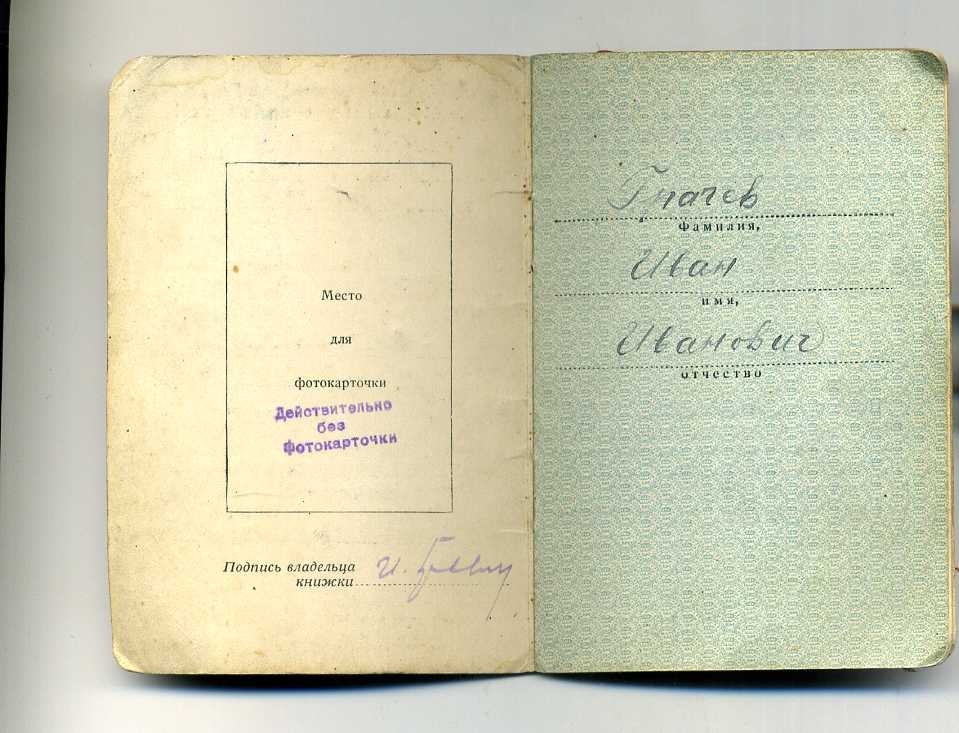 Место
для
фотокарточки
Действительно
без
фотокарточки
Подпись владельца
книжки
И.
фамилия,
Иван
имя,
Иванович
отчество